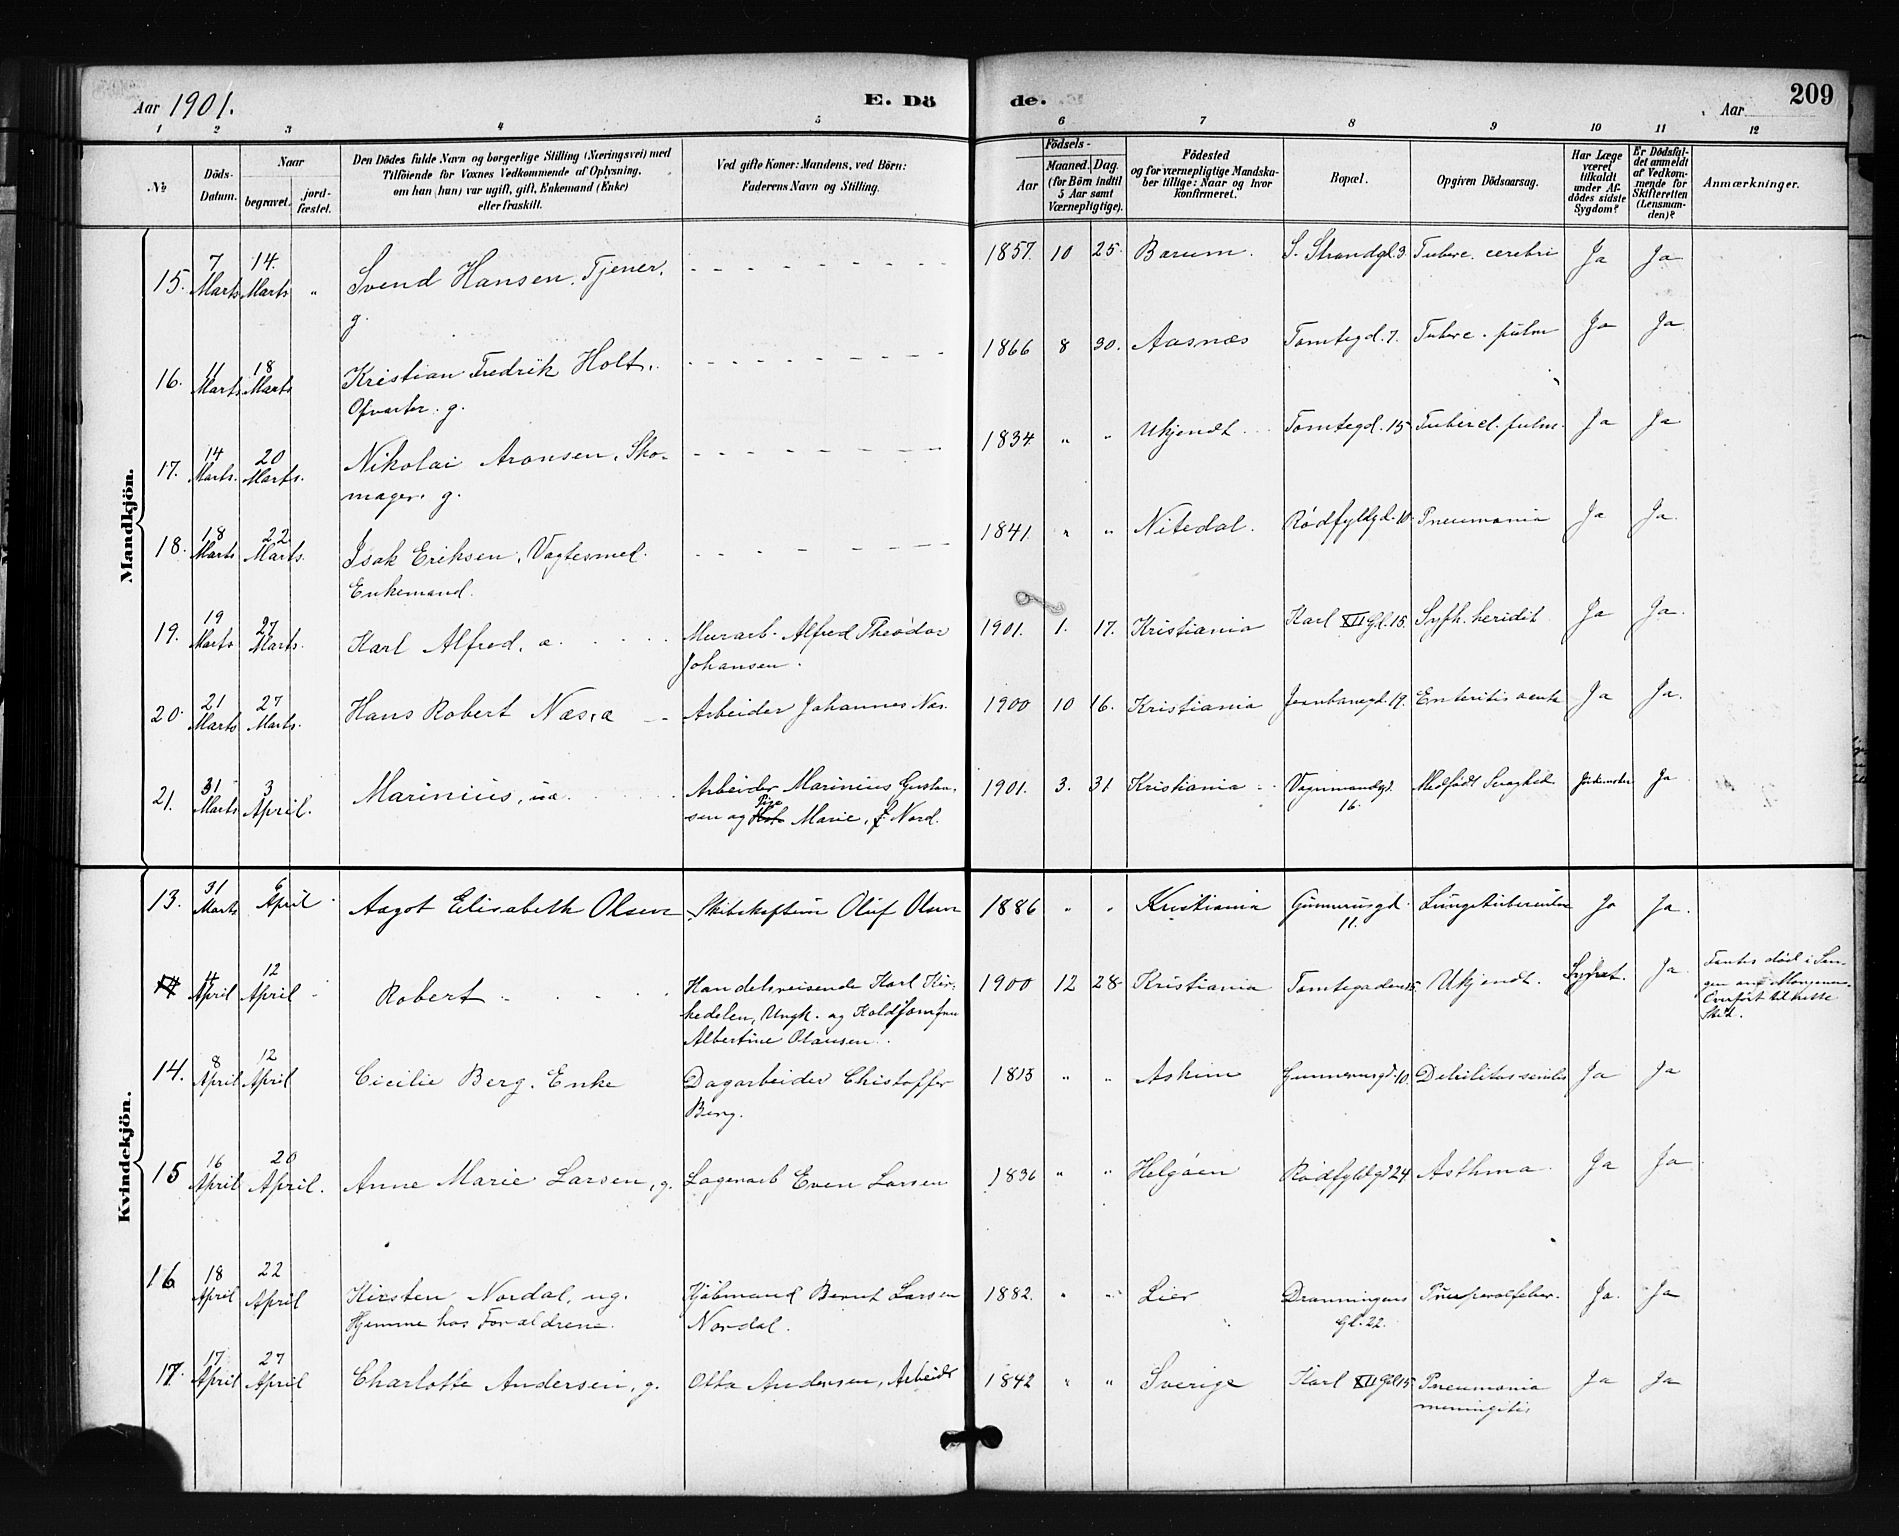 Aar 1901. E. Dö de. Aar 209
1 2 3 4 5 6 7 8 9 10 11 12
№
Döds-Datum.
Naar
begravet. jord-fæstet.
Den Dödes fulde Navn og borgerlige Stilling (Næringsvei) med
Tilföiende for Voxnes Vedkommende af Oplysning,
om han (hun) var ugift, gift, Enkemand (Enke)
eller fraskilt.
Ved gifte Koner: Mandens, ved Börn:
Faderens Navn og Stilling.
Födsels-
Aar Maaned. Dag.
(for Börn indtil
5 Aar samt
Værnepligtige).
Födested
og for værnepligtige Mandska-
ber tillige: Naar og hvor
konfirmeret.
Bopæl.
Opgiven Dödsaarsag.
Har Læge
været
tilkaldt
under Af-
dödes sidste
Sygdom?
Er Dödsfal-
det anmeldt
af Vedkom-
mende for
Skifteretten
(Lensman-
den)?
Anmærkninger.
Mandkjön.
15. 7 Marts 14. Marts " Svend Hansen. Tjener. 1857. 10 25. Bærum. S. Strandgd. 3. Tuberc. cerebri Ja Ja
g.
16. 11 Marts 18 Marts Kristian Fredrik Holt. 1866 8 30. Aasnæs Tomtegd. 7. Tuberc. pulm Ja Ja
Opvarter. g.
17. 14 Marts. 20 Marts. Nikolai Aronsen. Sko- 1834 " " Ukjendt Tomtegd. 15 Tubercl. pulm. Ja Ja
mager. g.
18. 18 Marts 22 Marts. Isak Eriksen, Vagtesmed. 1841 " " Nitedal. Rödfyldgd. 10 Pneumonia Ja Ja.
Enkemand.
19. 19 Marts 27 Marts. Karl Alfred, æ. Murarb. Alfred Theodor 1901. 1. 17. Kristiania Karl XII Gd. 15. Syph. heridit Ja Ja.
Johansen.
20. 21 Marts 27 Marts. Hans Robert Næs, æ Arbeider Johannes Næs. 1900 10 16. Kristiania Jernbanegd. 19. Enteritis acuta Ja Ja.
21. 31 Marts 3 April. Marinius, uæ. Arbeider Marinius Gustav- 1901. 3. 31 Kristiania Vognmandsgd. 16. Medfødt Svaghed Jordemoder Ja
sen og Pige Marie, f. Nord.
Kvindekjön.
13. 31 Marts 6 April Aagot Elisabeth Olsen Skibskaptein Oluf Olsen 1886 " " Kristiania Gunnerusgd. 11. Lungetuberculose Ja Ja.
14 4 April 12 April Robert Handelsreisende Karl Kir- 1900 12 28. Kristiania Tomtegaden 15. Ukjendt. Ja Fantes død i Sen-
kedelen, Ungk. og Koldjomfru gen om Morgenen.
Albertine Olausen. Overført til rette
Sted.
14. 8 April 12 April Cicilie Berg. Enke Dagarbeider Chistoffer 1815 " " Askim Gunnerusgd. 10. Debilitas senilis Ja Ja
Berg.
15 16 April 20 April. Anne Marie Larsen, g. Lagerarb Even Larsen 1836 " " Helgöen Rödfyldgd 24 Asthma Ja Ja
16 18 April 22 April Kirsten Nordal, ug. Kjöbmand Bernt Larsen 1882. " " Lier Dronningens Gd. 22. Puerperalfeber. Ja. Ja
Hjemme hos Forældrene. Nordal.
17. 17 April 27 April Charlotte Andersen, g. Otto Andersen, Arbeider 1842 " " Sverige Karl XII Gd 15 Pneumonia Ja Ja
meningitis